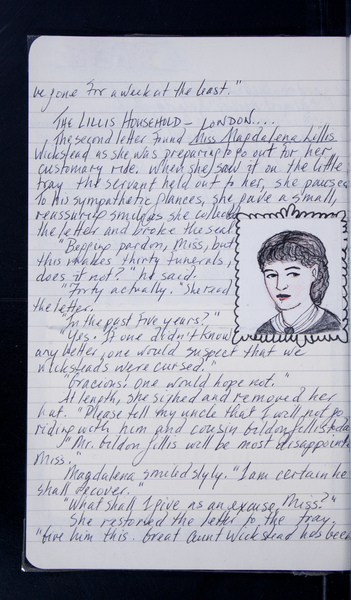 be gone for a week at the least."
THE LILLIS HOUSEHOLD – LONDON....
The second letter found Miss Magdalena Lillis
Wickstead as she was preparing to go out for her
customary ride. When she saw it on the little
tray the servant held out to her, she paused
To his sympathetic glances, she gave a small,
reassuring smile as she
the letter and broke the seal
"Begging pardon, Miss, but
this makes thirty funerals,
does it not?" he said.
"Forty actually." She read
the letter.
"In the past five years?"
"Yes. If one didn't know
any better, one would suspect that we
wicksteads were cursed."
"Gracious! One would hope not."
At length, she sighed and removed her
hat. "Please tell my uncle that I will not go
riding with him and cousin
"Mr. will be most
Miss."
Magdalena smiled slyly. "I am certain he
shall recover."
"What shall I give as an excuse, Miss?"
She restored the letter to the tray.
"Give him this. Great Aunt Wickstead has been